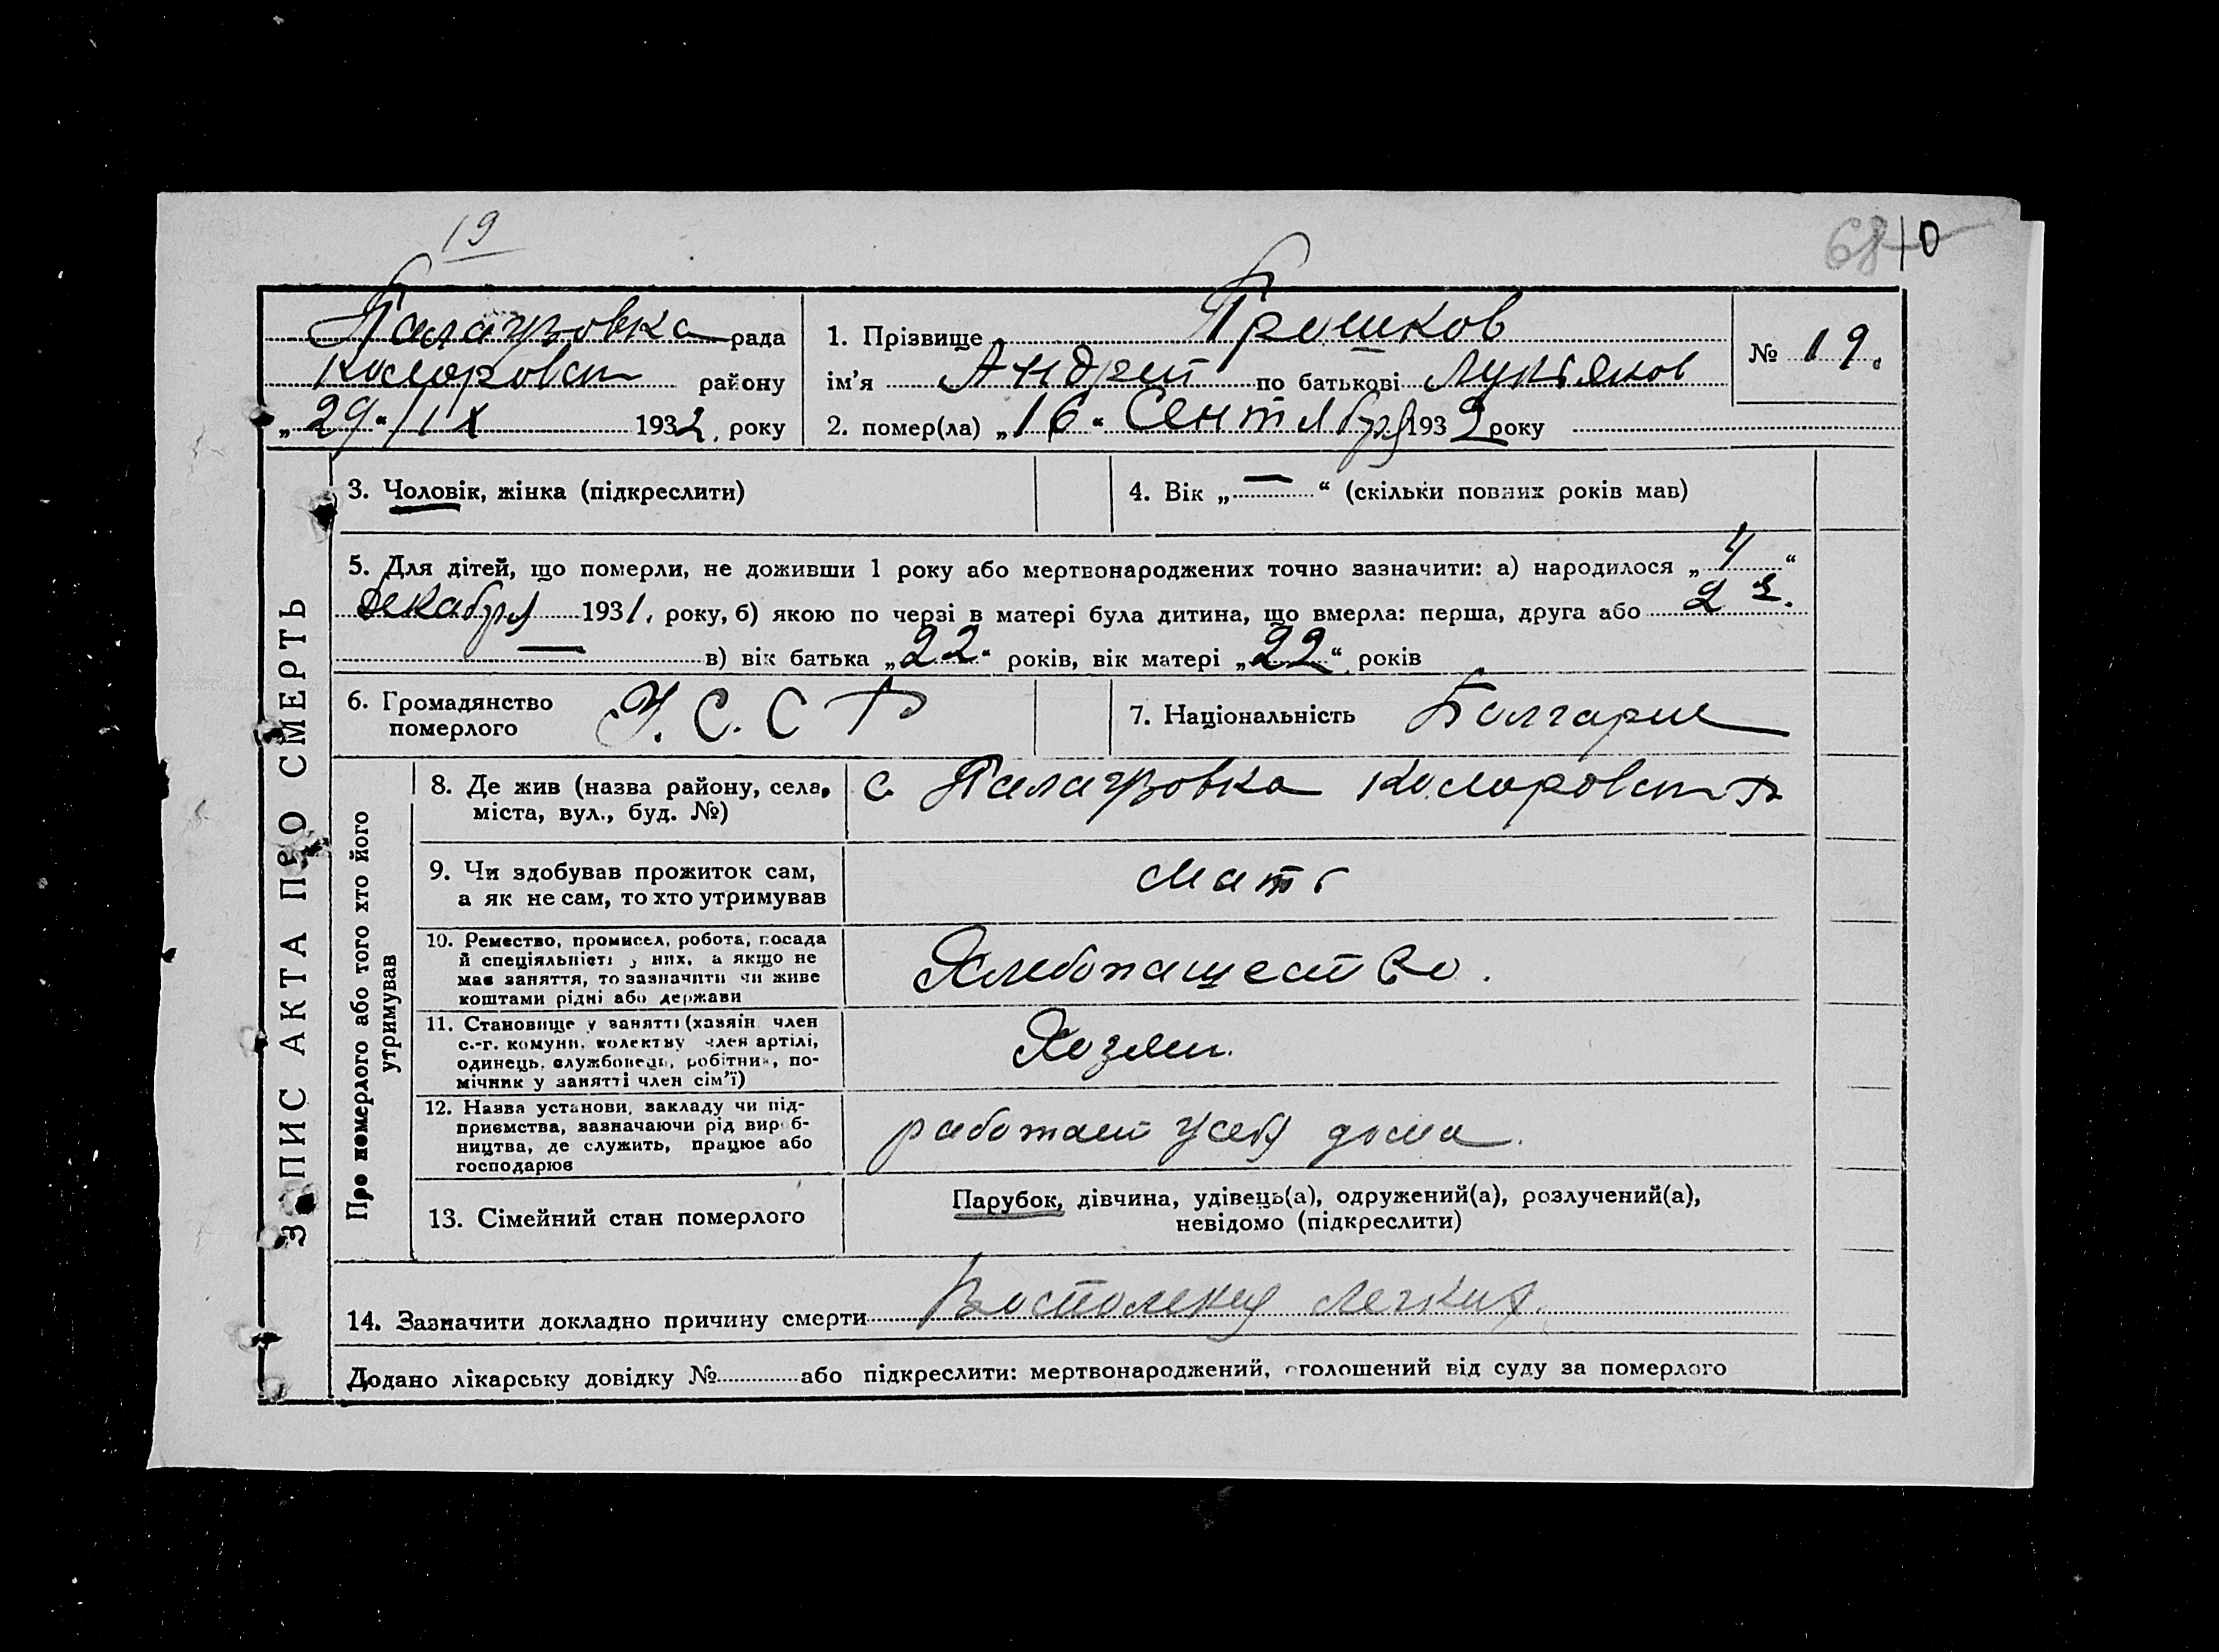 19
68 10
Палаузовка рада
Коларовск району
„29“/IX 1932, року
1. Прізвище Грошков
ім’я Андрей по батькові Лукьянов
2. помер(ла) „16“ Сентября 1932 року
№ 19.
ЗАПИС АКТА ПРО СМЕРТЬ
3. Чоловік, жінка (підкреслити)
4. Вік „—“ (скільки повних років мав)
5. Для дітей, що померли, не доживши 1 року або мертвонароджених точно зазначити: а) народилося „4“
Декабря 1931, року, б) якою по черзі в матері була дитина, що вмерла: перша, друга або 2я.
— в) вік батька „22“ років, вік матері „22“ років
6. Громадянство
померлого
У.С.С.Р
7. Національність Болгарин
Про померлого або того хто його
утримував
8. Де жив (назва району, села,
міста, вул., буд. №)
с Палаузовка Коларовск Р
9. Чи здобував прожиток сам,
а як не сам, то хто утримував
Мать
10. Ремество, промисел, робота, посада
й спеціяльність у них, а якщо не
має заняття, то зазначити чи живе
коштами рідні або держави
Хлебопашество.
11. Становище у занятті (хазяїн член
с.-г. комуни, колективу член артілі,
одинець, службовець, робітник, по-
мічник у занятті член сім’ї)
Хозяин.
12. Назва установи, закладу чи під-
приємства, зазначаючи рід вироб-
ництва, де служить, працює або
господарює
работает у себя дома.
13. Сімейний стан померлого
Парубок, дівчина, удівець(а), одружений(а), розлучений(а),
невідомо (підкреслити)
14. Зазначити докладно причину смерти Востоления легких.
Додано лікарську довідку № або підкреслити: мертвонароджений, оголошений від суду за померлого